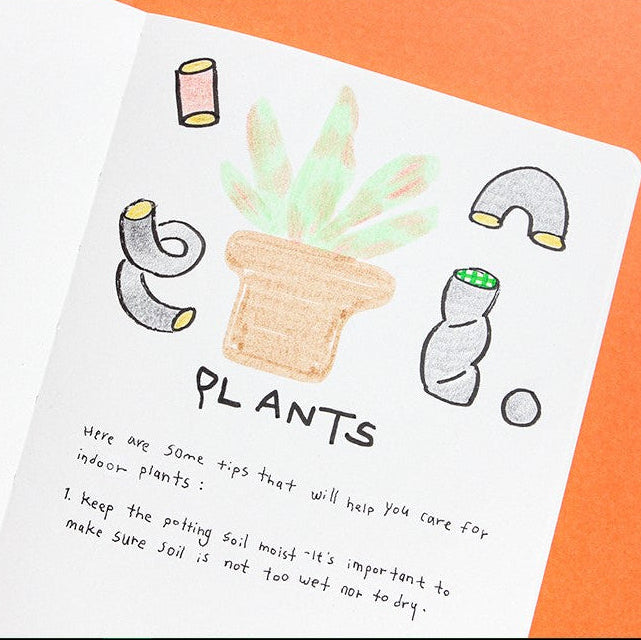 PLANTS
Here are some tips that will help you care for
indoor plants :
1. Keep the potting soil moist - It's important to
make sure soil is not too wet nor to dry.